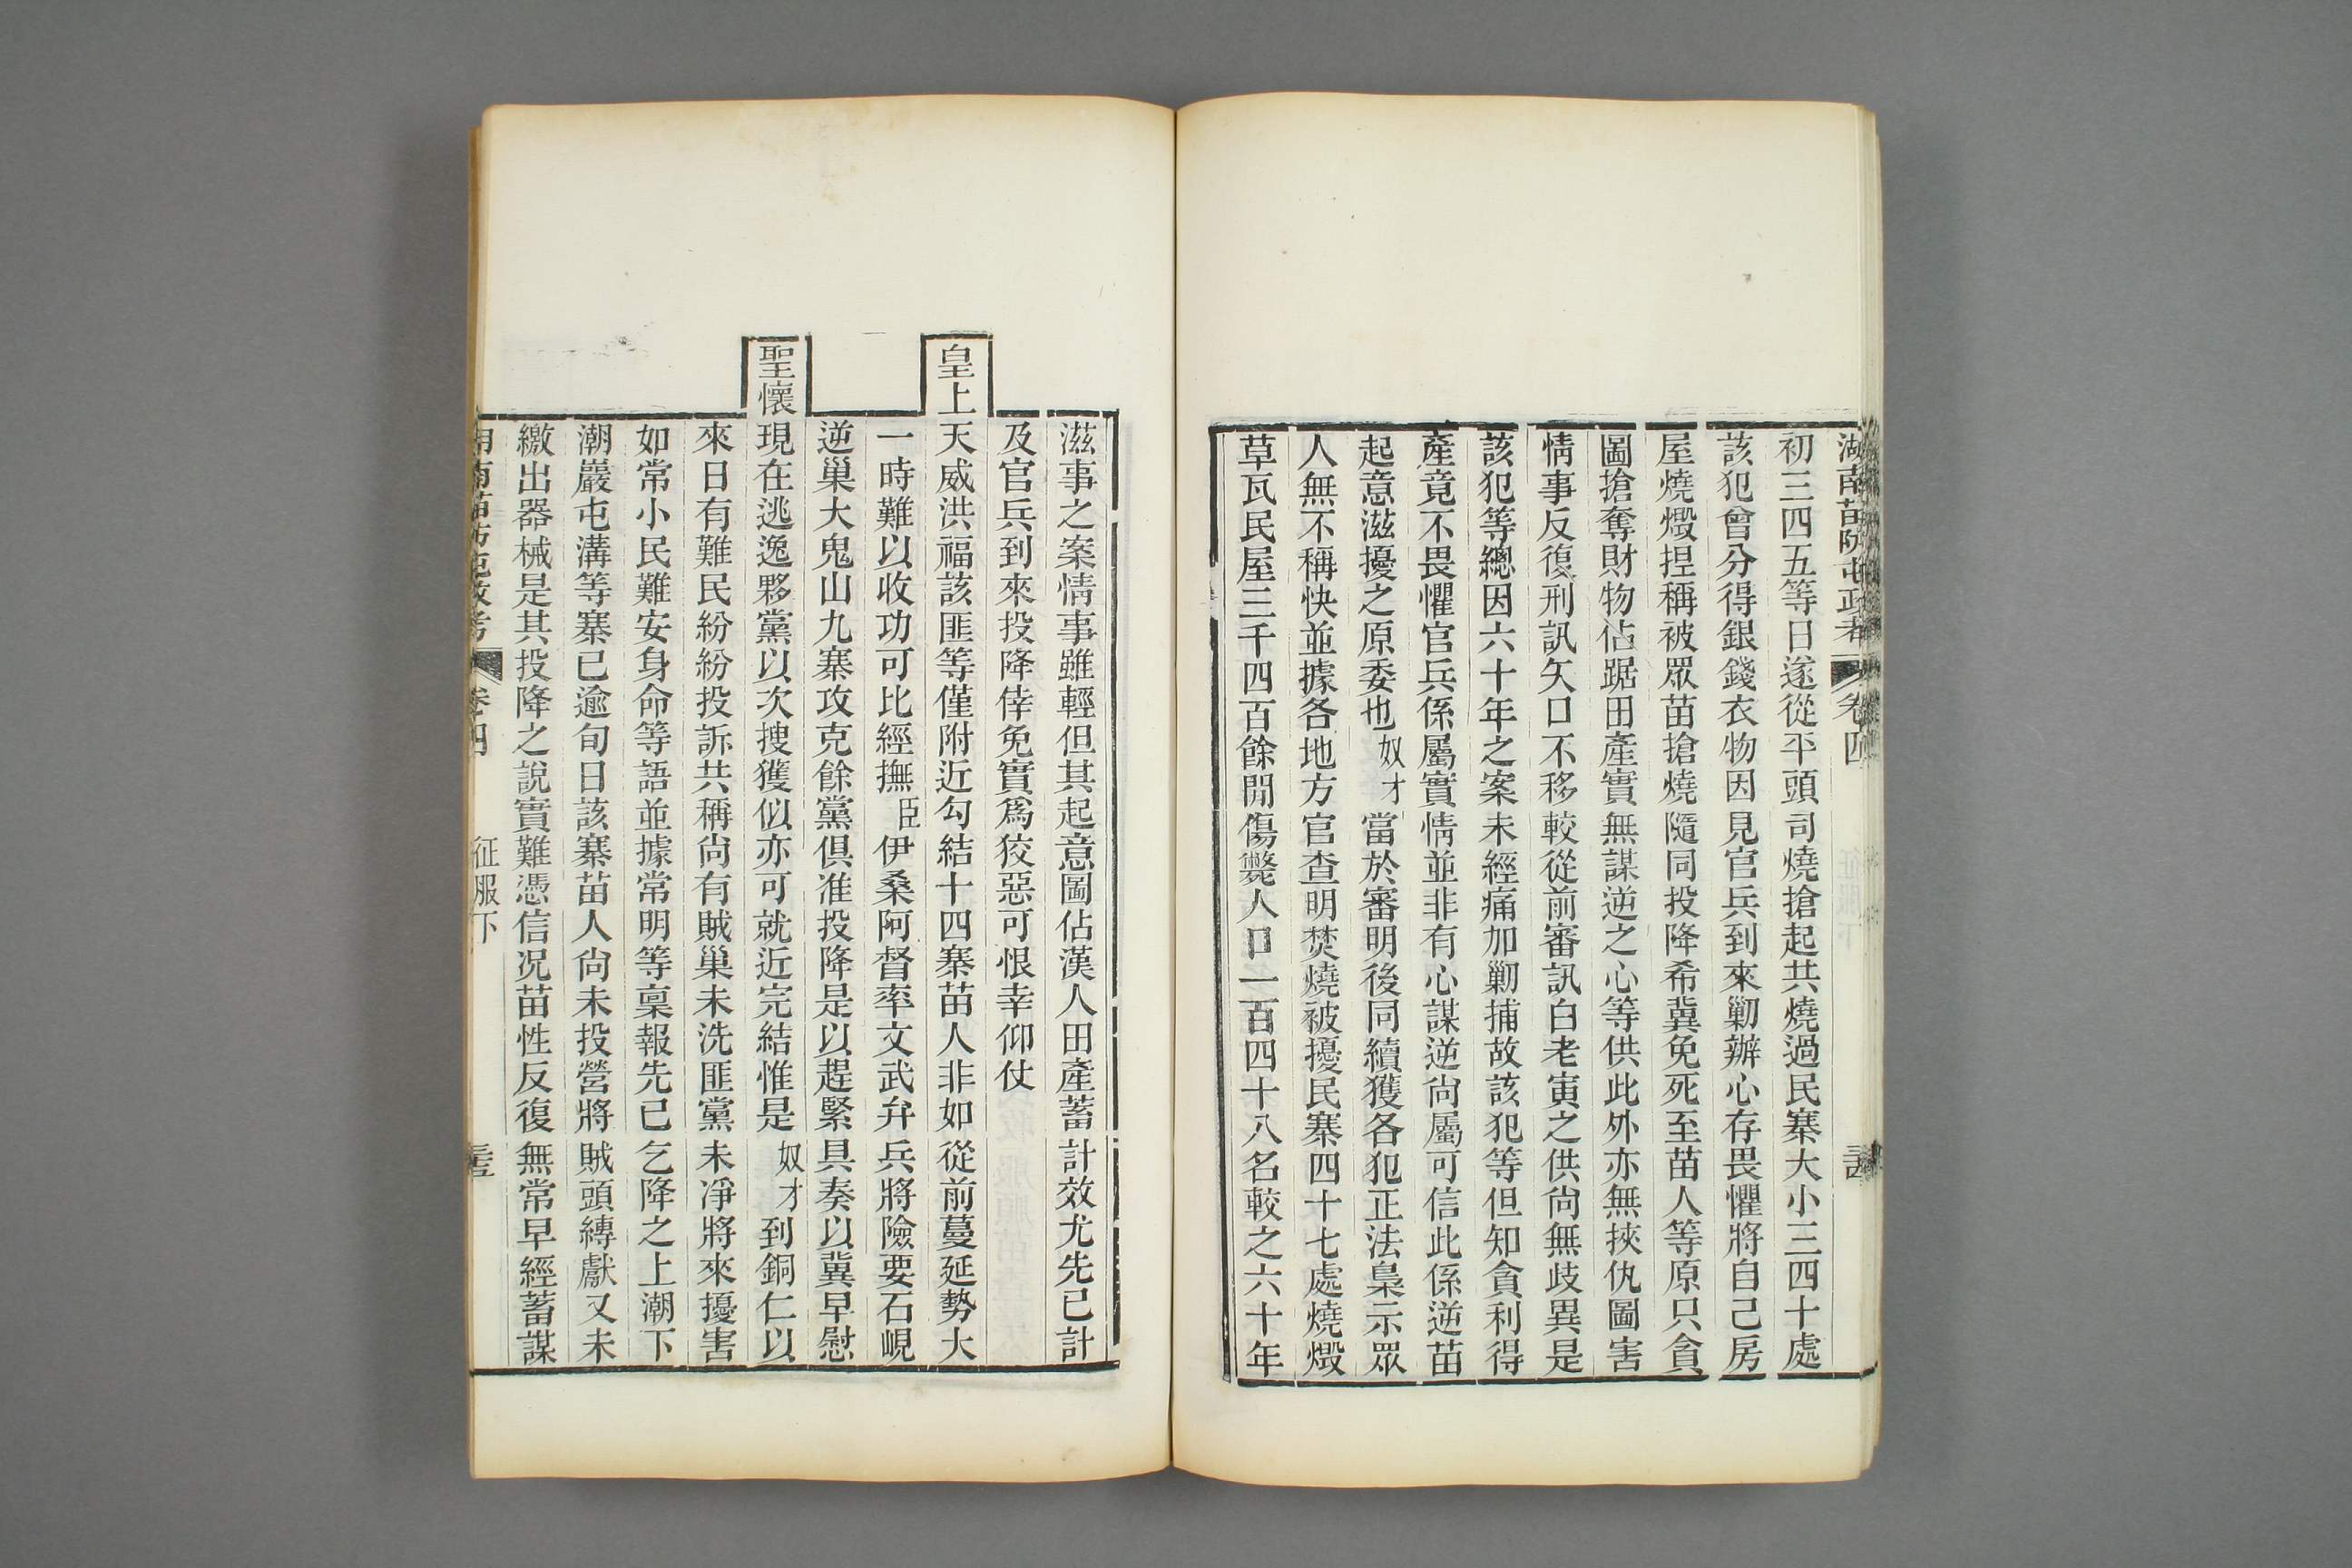 湖南苗防屯政考 卷四
初三四五等日遂從平頭司燒搶起共燒過民寨大小三四十處
該犯曾分得銀錢衣物因見官兵到來勦辦心存畏懼將自己房
屋燒燬捏稱被眾苗搶燒隨同投降希冀免死至苗人等原只貪
圖搶奪財物佔踞田產實無謀逆之心等供此外亦無挾仇圖害
情事反復刑訊矢口不移較從前審訊白老寅之供尚無歧異是
該犯等總因六十年之案未經痛加勦捕故該犯等但知貪利得
產竟不畏懼官兵係屬實情並非有心謀逆尚屬可信此係逆苗
起意滋擾之原委也奴才當於審明後同續獲各犯正法梟示眾
人無不稱快並據各地方官查明焚燒被擾民寨四十七處燒燬
草瓦民屋三千四百餘閒傷斃人口一百四十八名較之六十年
滋事之案情事雖輕但其起意圖佔漢人田產蓄計效尤先已計
及官兵到來投降倖免實為狡惡可恨幸仰仗
皇上天威洪福該匪等僅附近勾結十四寨苗人非如從前蔓延勢大
一時難以收功可比經撫臣伊桑阿督率文武弁兵將險要石峴
逆巢大鬼山九寨攻克餘黨俱准投降是以趕緊具奏以冀早慰
聖懷現在逃逸夥黨以次搜獲似亦可就近完結惟是奴才到銅仁以
來日有難民紛紛投訴共稱尚有賊巢未洗匪黨未凈將來擾害
如常小民難安身命等語並據常明等稟報先已乞降之上潮下
潮巖屯溝等寨已逾旬日該寨苗人尚未投營將賊頭縛獻又未
繳出器械是其投降之說實難憑信況苗性反復無常早經蓄謀
卷四 征服下